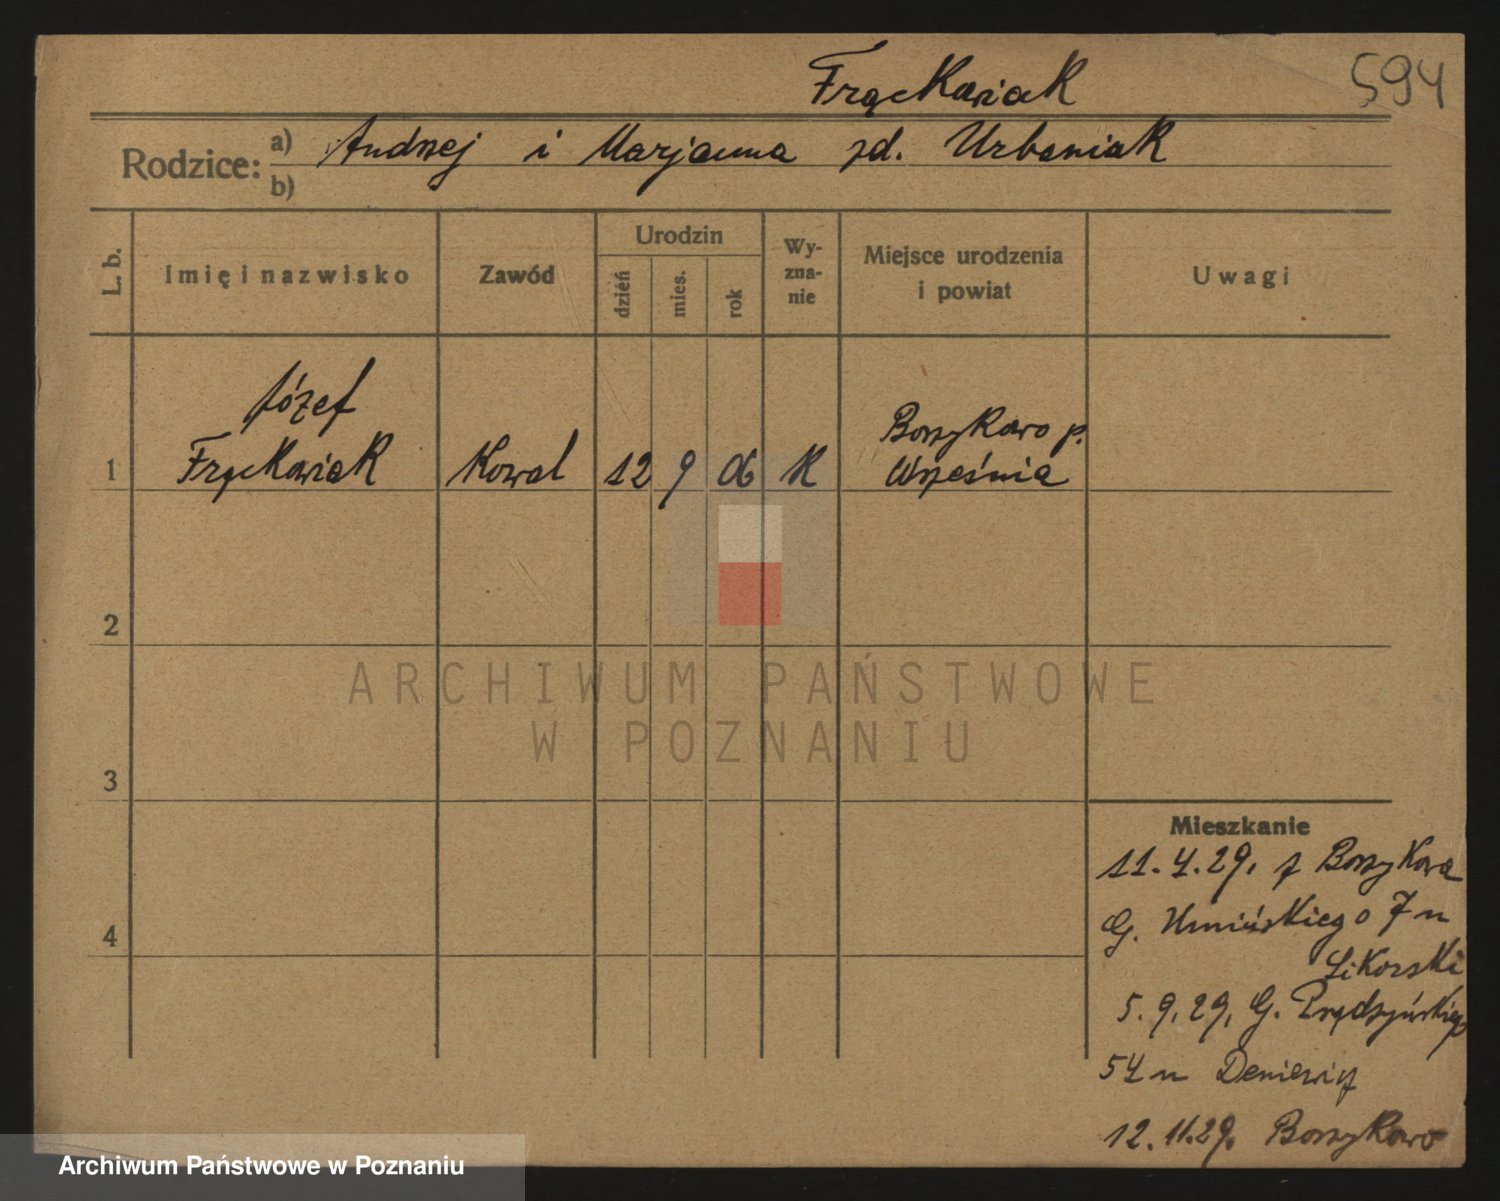 Frąckowiak 594
Rodzice: a) Andrzej i Marjanna zd. Urbaniak
b)
L. b. Imię i nazwisko Zawód Urodzin dzień mies. rok Wy-zna-nie Miejsce urodzenia i powiat Uwagi
Józef
1 Frąckowiak Kowal 12 9 06 K Borzykowo p.
Września
2
3
4
Mieszkanie
11.4.29. z Borzykowa
G. Umińskiego 7 u
Sikorski
5.9.29. G. Prądzyńskiego
54 u
12.11.29. Borzykowo
ARCHIWUM PAŃSTWOWE
W POZNANIU
Archiwum Państwowe w Poznaniu